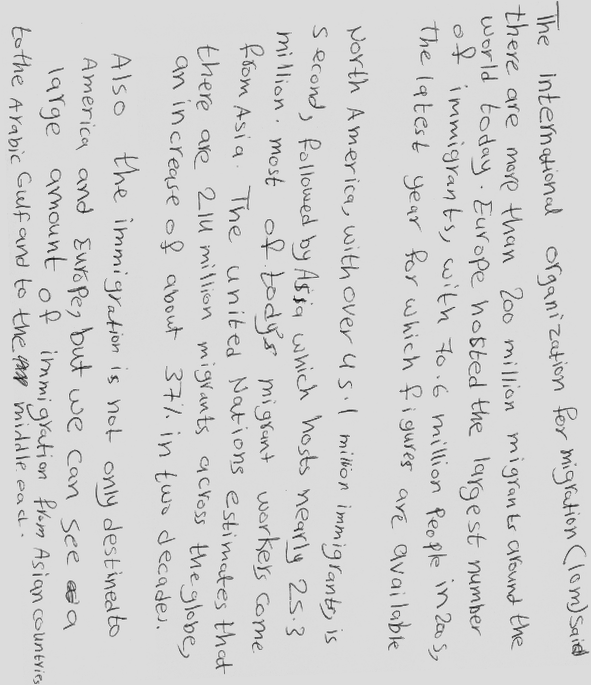 The international organization for migration (Iom) said
there are more than 200 million migrants around the
world today. Europe hosted the largest number
of immigrants, with 70.6 million People in 2005,
the latest year for which figures are available
North America, with over 45.1 million immigrants, is
second, followed by Asia which hosts nearly 25.3
million. most of todys migrant workers come
from Asia. The united Nations estimates that
there are 214 million migrants across the globe,
an increase of about 37% in two decades.
Also the immigration is not only destined to
America and Europe, but we can see a
large amount of immigration from Asian countries
to the Arabic Gulf and to the middle east.